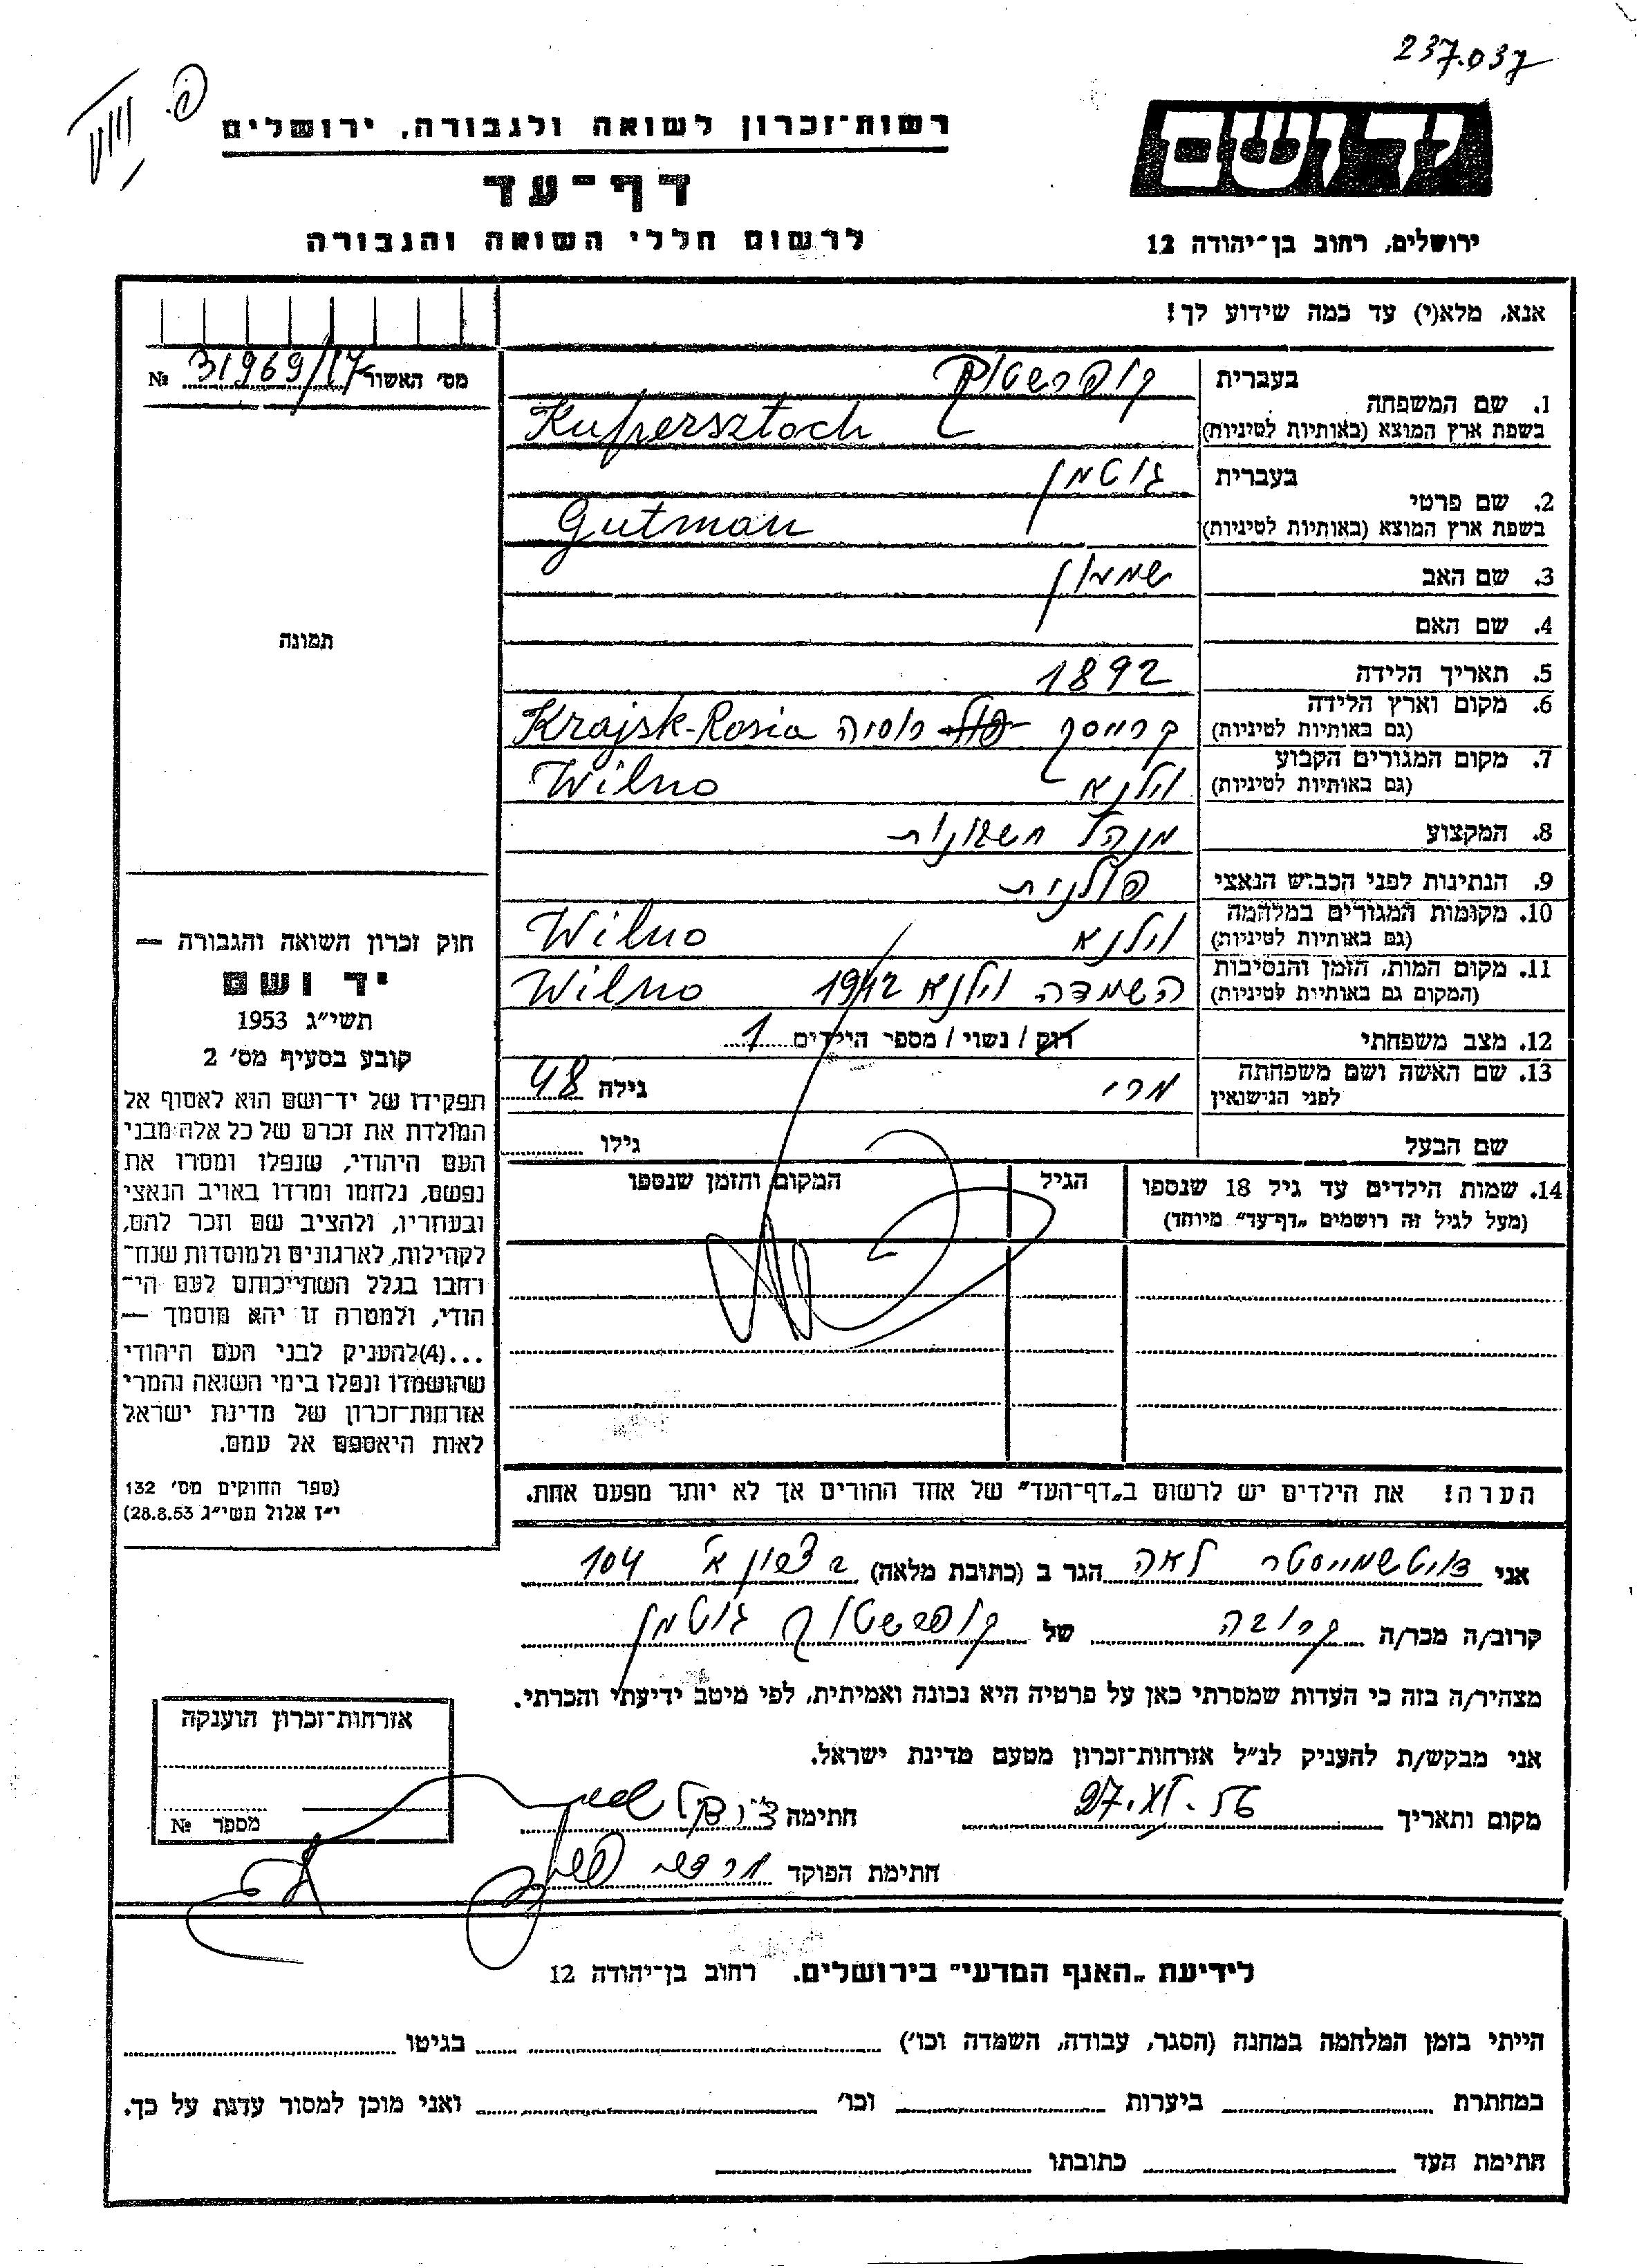 237.037
יד ושם
רשות־זכרון לשואה ולגבורה, ירושלים
דף־עד
לרשום חללי השואה והגבורה
ירושלים, רחוב בן־יהודה 12
אנא, מלא(י) עד כמה שידוע לך!
מס׳ האשור 31969/17 №
1. שם המשפחה
בעברית קופרשטוך
בשפת ארץ המוצא (באותיות לטיניות) Kupersztoch
2. שם פרטי
בעברית גוטמן
בשפת ארץ המוצא (באותיות לטיניות) Gutman
3. שם האב שמעון
4. שם האם
5. תאריך הלידה 1892
6. מקום וארץ הלידה
(גם באותיות לטיניות) קרייסק רוסיה Krajsk-Rosia
7. מקום המגורים הקבוע
(גם באותיות לטיניות) וילנא Wilno
8. המקצוע מנהל חשבונות
9. הנתינות לפני הכבוש הנאצי פולנית
10. מקומות המגורים במלחמה
(גם באותיות לטיניות) וילנא Wilno
11. מקום המות, הזמן והנסיבות
(המקום גם באותיות לטיניות) השמדה וילנא 1942 Wilno
12. מצב משפחתי רוק / נשוי / מספר הילדים 1
13. שם האשה ושם משפחתה
לפני הנישואין מרי גילה 48
שם הבעל גילו
14. שמות הילדים עד גיל 18 שנספו
(מעל לגיל זה רושמים „דף־עד״ מיוחד)
הגיל
המקום והזמן שנספו
הערה! את הילדים יש לרשום ב„דף־העד״ של אחד ההורים אך לא יותר מפעם אחת.
תמונה
חוק זכרון השואה והגבורה —
יד ושם
תשי״ג 1953
קובע בסעיף מס׳ 2
תפקידו של יד־ושם הוא לאסוף אל
המולדת את זכרם של כל אלה מבני
העם היהודי, שנפלו ומסרו את
נפשם, נלחמו ומרדו באויב הנאצי
ובעוזריו, ולהציב שם וזכר להם,
לקהילות, לארגונים ולמוסדות שנח־
רבו בגלל השתייכותם לעם הי־
הודי, ולמטרה זו יהא מוסמך —
...(4)להעניק לבני העם היהודי
שהושמדו ונפלו בימי השואה והמרי
אזרחות־זכרון של מדינת ישראל
לאות היאספם אל עמם.
(ספר החוקים מס׳ 132
י״ז אלול תשי״ג 28.8.53)
אני דויטשמייסטר לאה הגר ב (כתובת מלאה) 104
קרוב/ה מכר/ה קרובה של קופרשטוך גוטמן
מצהיר/ה בזה כי העדות שמסרתי כאן על פרטיה היא נכונה ואמיתית, לפי מיטב ידיעתי והכרתי.
אני מבקש/ת להעניק לנ״ל אזרחות־זכרון מטעם מדינת ישראל.
מקום ותאריך חתימה
חתימת הפוקד
אזרחות־זכרון הוענקה
מספר №
לידיעת „האגף המדעי״ בירושלים. רחוב בן־יהודה 12
הייתי בזמן המלחמה במחנה (הסגר, עבודה, השמדה וכו׳) בגיטו
במחתרת ביערות וכו׳ ואני מוכן למסור עדות על כך.
חתימת העד כתובתו